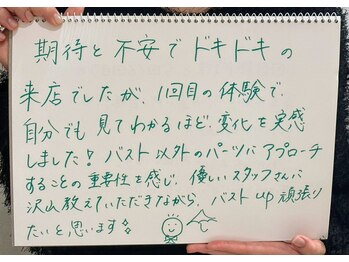 期待と不安でドキドキの
来店でしたが、1回目の体験で、
自分でも見てわかるほど、変化を実感
しました！バスト以外のパーツにアプローチ
することの重要性を感じ、優しいスタッフさんに
沢山教えていただきながら、バストup頑張り
たいと思います